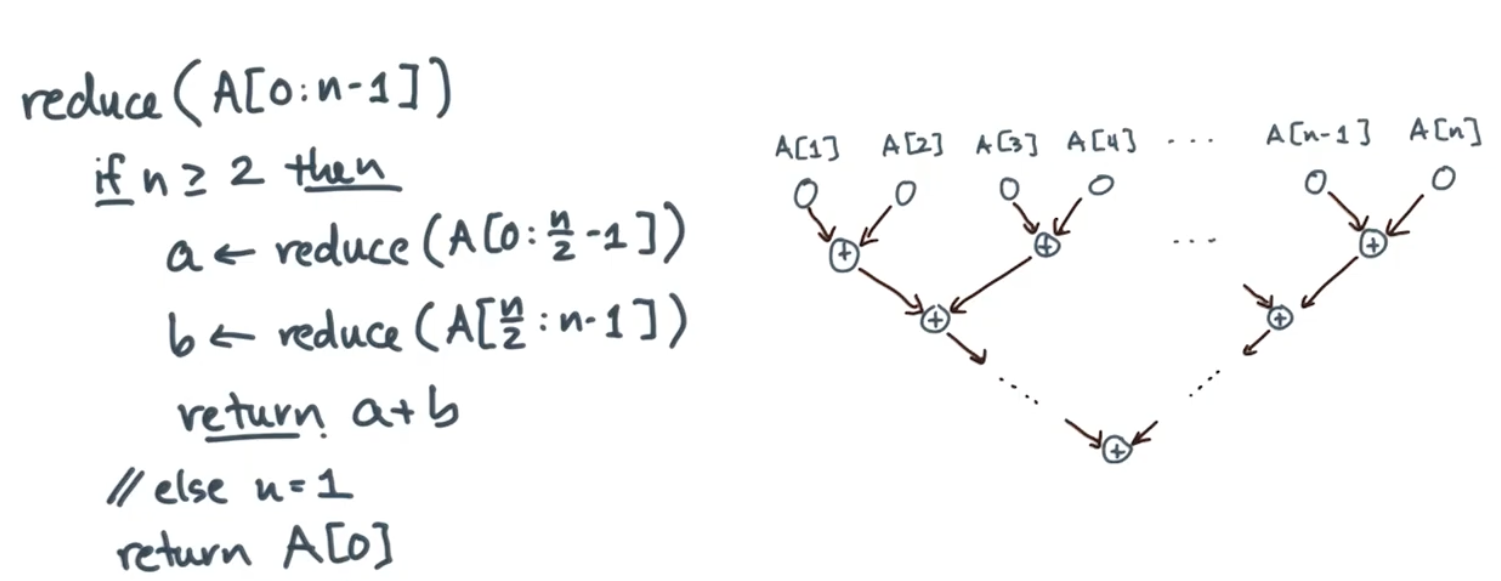 reduce(A[0:n-1])
if n ≥ 2 then
a ← reduce(A[0:n/2-1])
b ← reduce(A[n/2:n-1])
return a+b
// else n=1
return A[0]
A[1] A[2] A[3] A[4] ... A[n-1] A[n]
+ + ... +
+ +
+